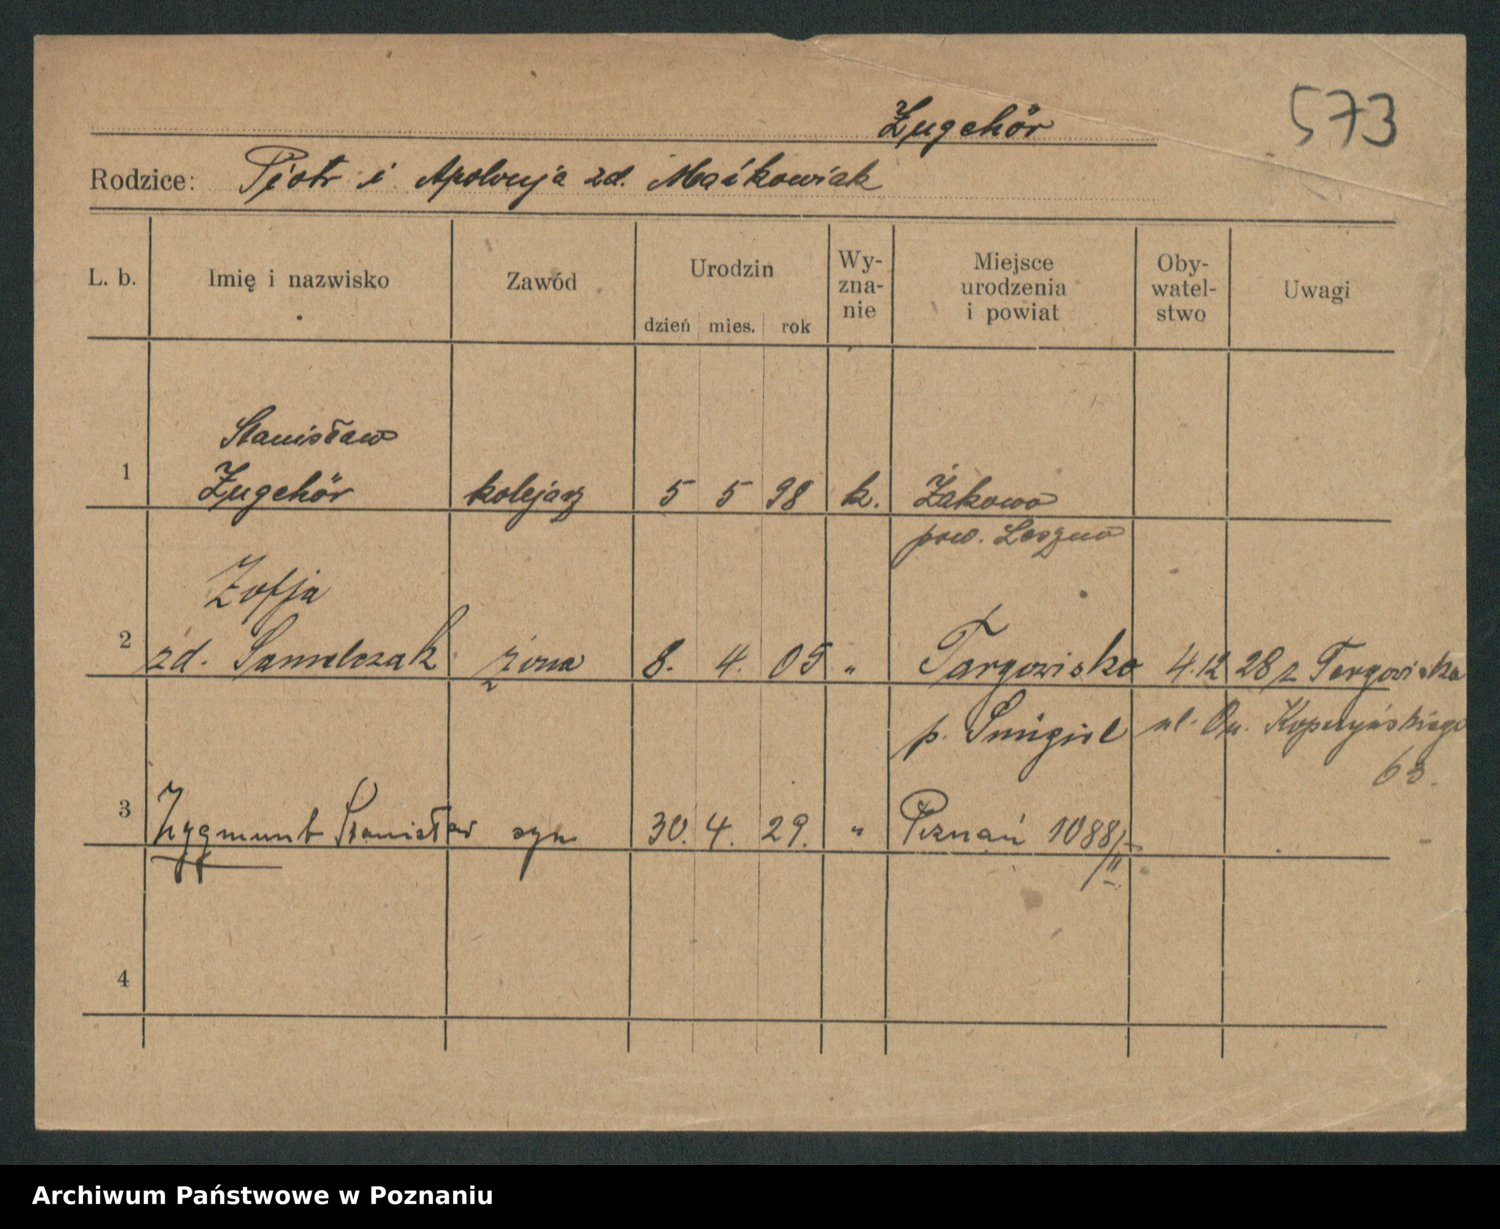 573
Zugehör
Rodzice: Piotr i Apolonja zd. Maćkowiak
L. b. Imię i nazwisko Zawód Urodzin dzień mies. rok Wy-zna-nie Miejsce urodzenia i powiat Oby-watel-stwo Uwagi
Stanisław
1 Zugehör kolejarz 5 5 98 k. Żakowo
pow. Leszno
Zofja
2 zd. Samelczak żona 8. 4. 05 " Targowisko 4.12 28 z Targowiska
p. Śmigiel ul. Kopczyńskiego
63.
3 Zygmunt Stanisław syn 30. 4. 29. " Poznań 1088/II
4
Archiwum Państwowe w Poznaniu